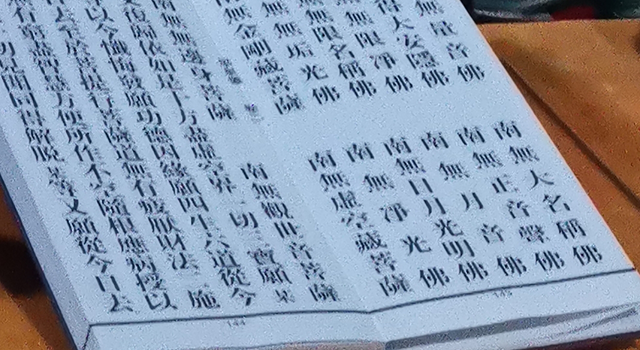 無量音佛　南無大名稱佛
得大安隱佛　南無正音聲佛
無限淨佛　南無月音佛
無限名稱佛　南無日月光明佛
無垢光佛　南無淨光佛
南無金剛藏菩薩　南無虛空藏菩薩
145
南無無邊身菩薩　南無觀世音菩薩
又復歸依如是十方盡虛空界一切三寶願某
等以今懺悔發願功德因緣願四生六道從今
去至於菩提行菩薩道無有疲厭財法二施
智慧方便所作不空隨根應病授以
切同得解脫某等又願從今日去
144